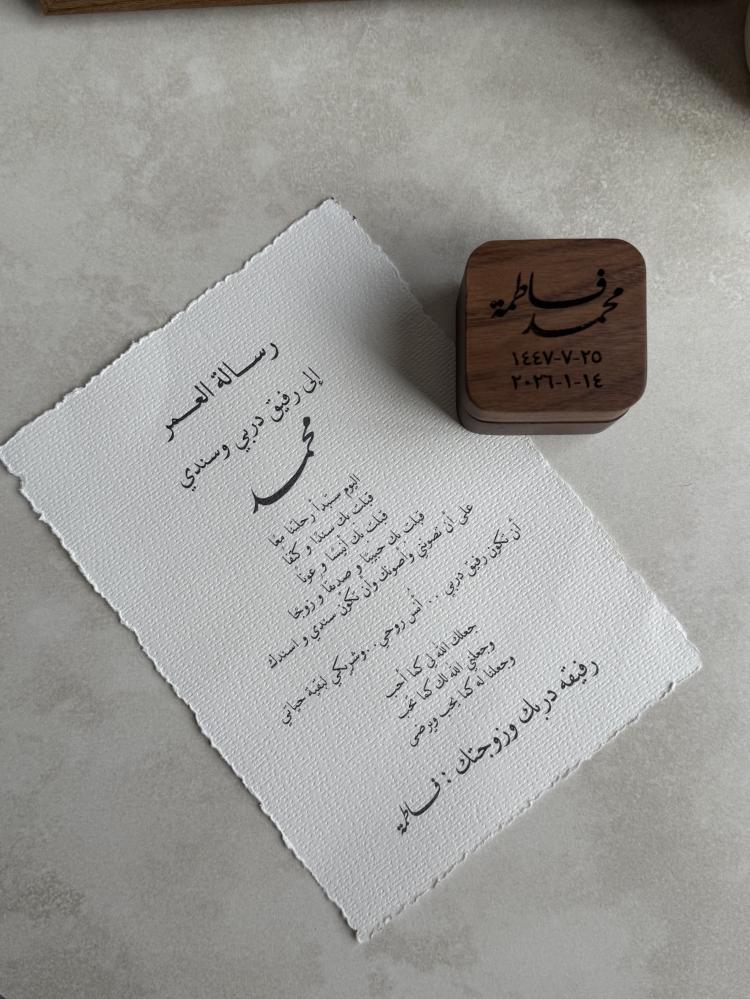 رسالة العمر
إلى رفيق دربي وسندي
محمد
اليوم سنبدأ رحلتنا معا
قبلت بك سندًا و كفًا
قبلت بك أنيسًا و عونًا
قبلت بك حبيبًا و صديقًا و زوجًا
على أن تصونني وأصونك وأن تكون سندي و اسندك
أن تكون رفيق دربي .. أُنس روحي ..وشريكي لبقية حياتي
جعلك الله لي كما أحب
وجعلني الله لك كما تحب
وجعلنا له كما يحب ويرضى
رفيقة دربك وزوجتك : فاطمة
فاطمة
محمد
١٤٤٧-٧-٢٥
٢٠٢٦-١-١٤